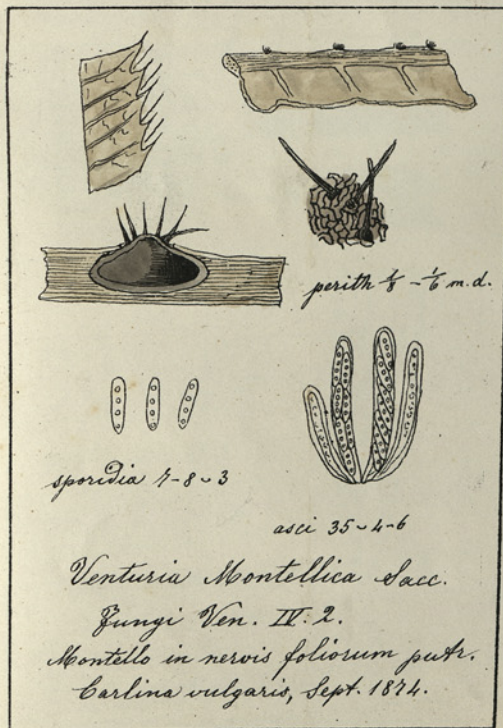 perith ⅛ - ⅙ m.d.
sporidia 7-8 ~ 3
asci 35 ~ 4-6
Venturia Montellica Sacc.
Fungi Ven. IV. 2.
Montello in nervis foliorum putr.
Carlina vulgaris, Sept. 1874.